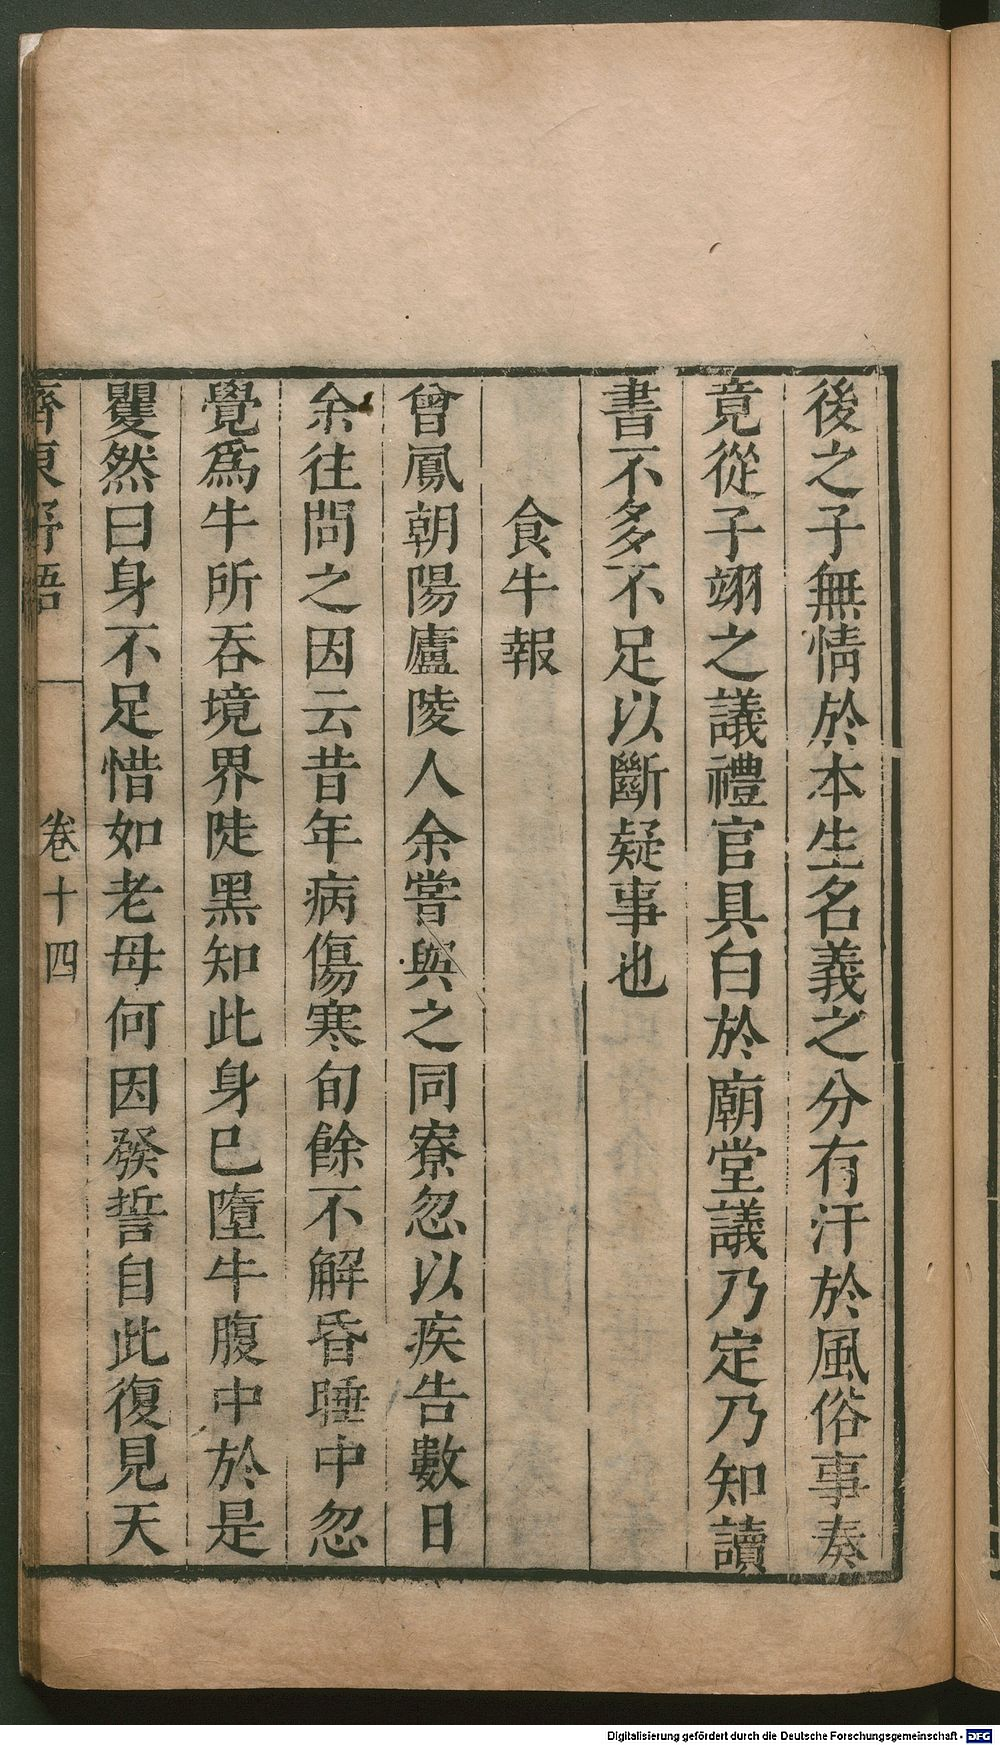 後之子無情於本生名義之分有汙於風俗事奏
竟從子翊之議禮官具白於廟堂議乃定乃知讀
書不多不足以斷疑事也
食牛報
曾鳳朝陽廬陵人余嘗與之同寮忽以疾告數日
余往問之因云昔年病傷寒旬餘不解昏睡中忽
覺爲牛所吞境界陡黑知此身已墮牛腹中於是
矍然曰身不足惜如老母何因發誓自此復見天
齊東野語
卷十四
Digitalisierung gefördert durch die Deutsche Forschungsgemeinschaft - DFG